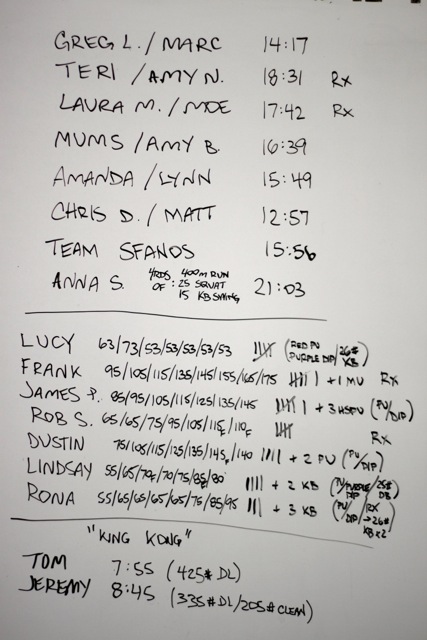 GREG L. / MARC 14:17
TERI / AMY N. 18:31 Rx
LAURA M. / MOE 17:42 Rx
MUMS / AMY B. 16:39
AMANDA / LYNN 15:49
CHRIS D. / MATT 12:57
TEAM SFANOS 15:56
ANNA S. 4 RDS OF: 400m RUN 25 SQUAT 15 KB SWING 21:03
LUCY 63/73/53/53/53/53/53 (RED PU PURPLE DIP/26# KB)
FRANK 95/105/115/135/145/155/165/175 |||| | + 1 MU Rx
JAMES P. 85/95/105/115/125/135/145 | + 3 HSPU (PU/DIP)
ROB S. 65/65/75/95/105/115F/110F Rx
DUSTIN 75/105/115/125/135/145F/140 |||| + 2 PU (PU/DIP)
LINDSAY 55/65/70F/70/75/85/80 |||| + 2 KB (PU/PURPLE DIP/25# DB)
RONA 55/65/65/65/65/75/85/95 ||| + 3 KB (PU/DIP/RX→26# KB x2)
"KING KONG"
TOM 7:55 (425# DL)
JEREMY 8:45 (335# DL/205# CLEAN)